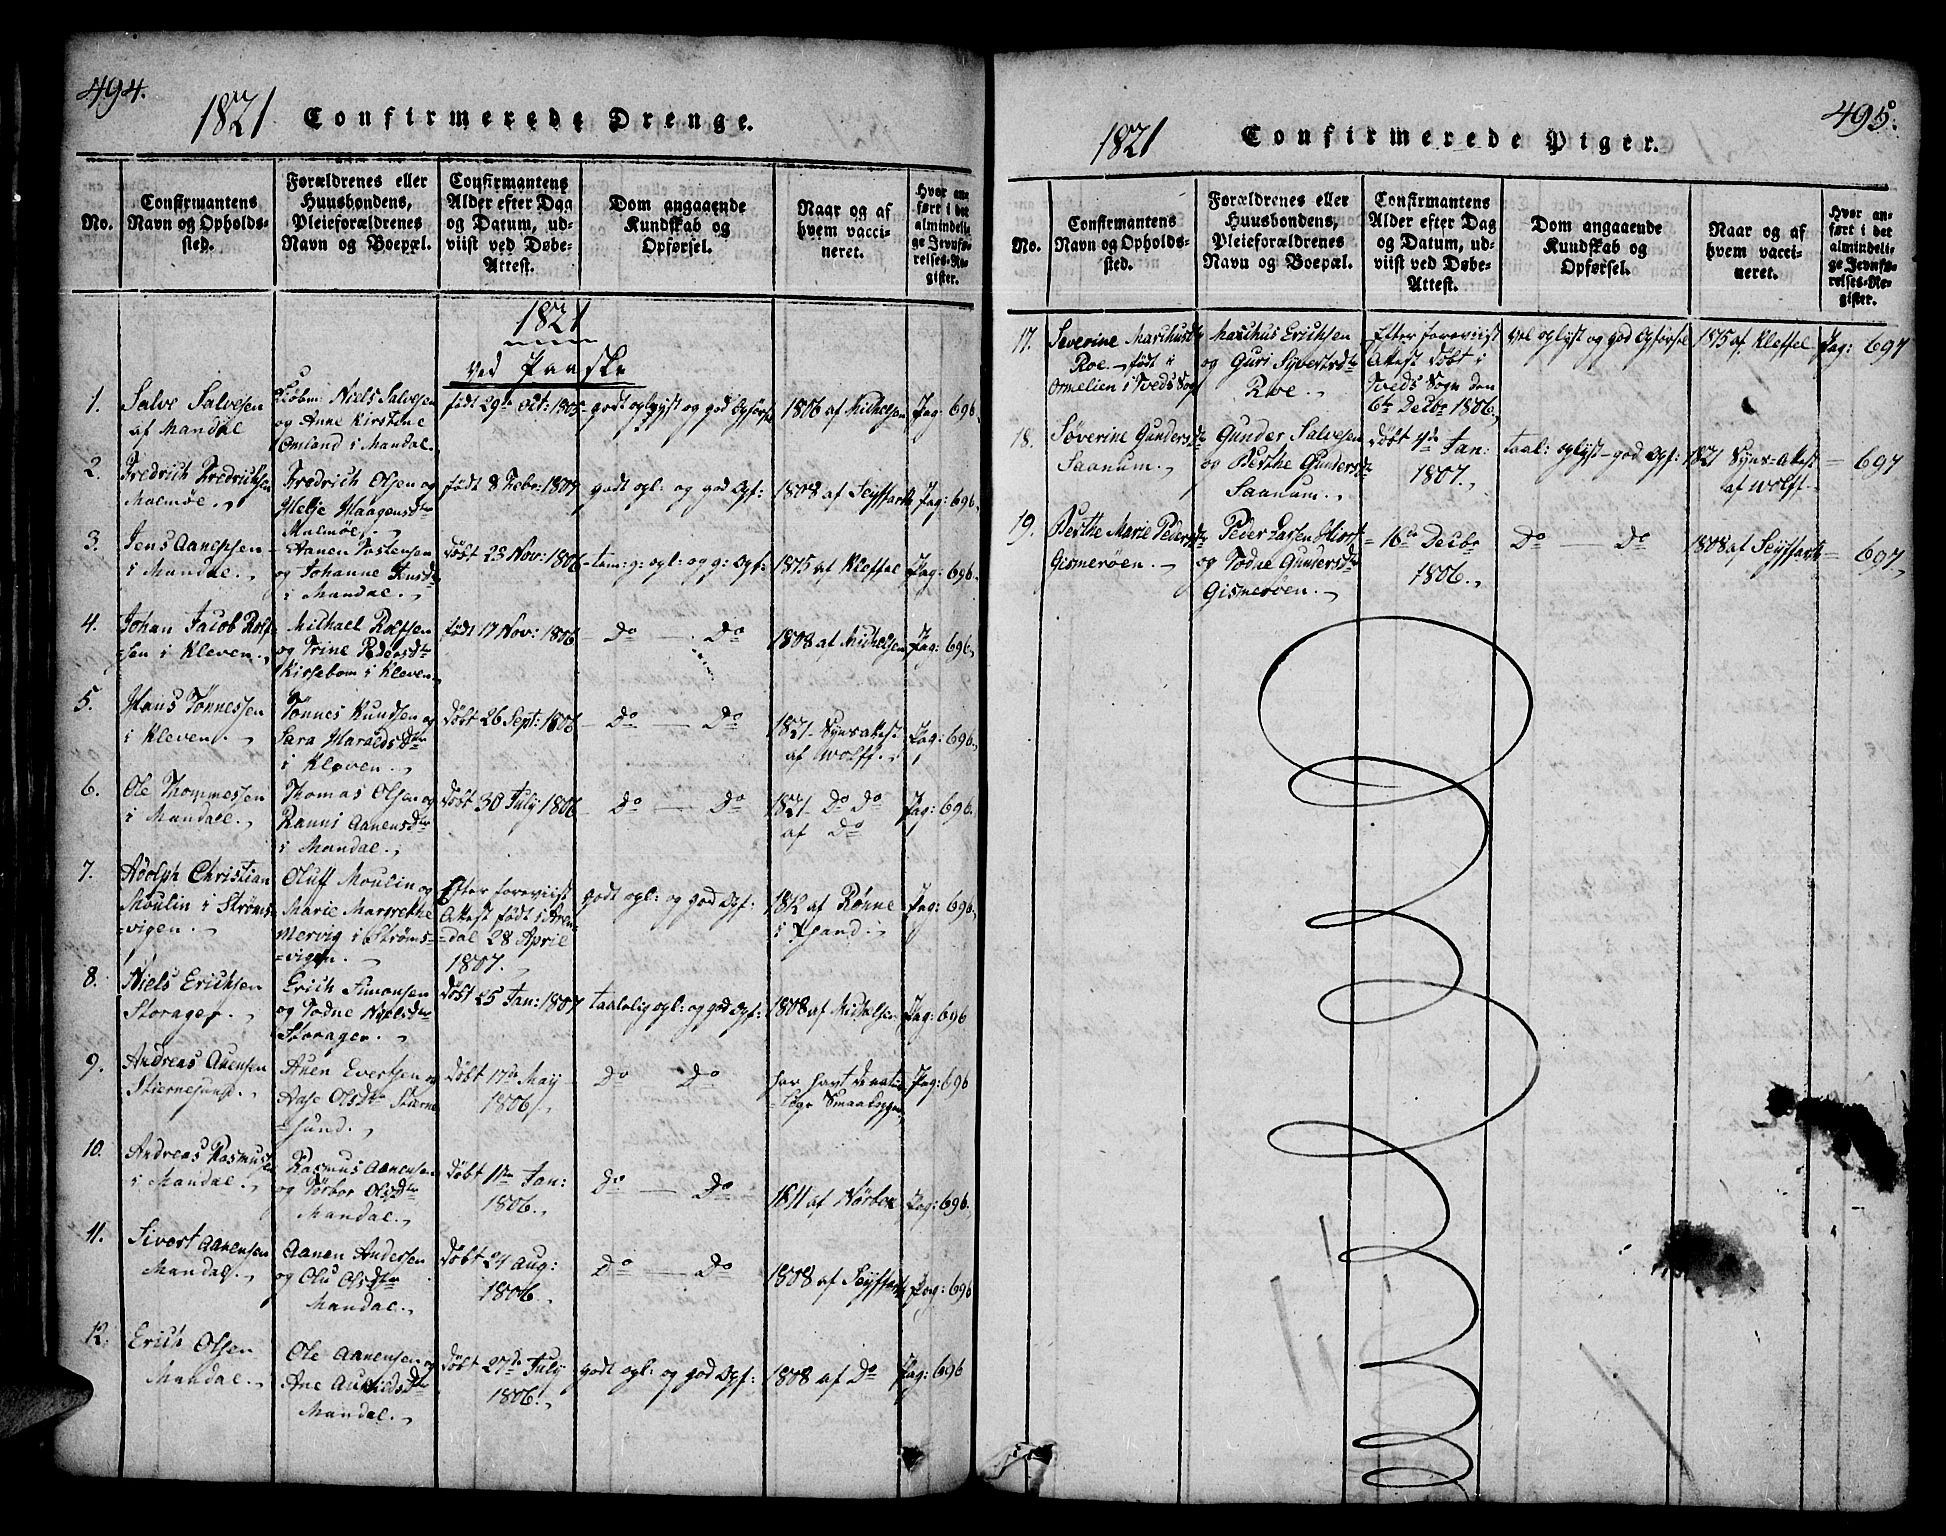 494.
1821 Confirmerede Drenge.
No.
Confirmantens
Navn og Opholds-
sted.
Forældrenes eller
Huusbondens,
Pleieforældrenes
Navn og Boepæl.
Confirmantens
Alder efter Dag
og Datum, ud-
viist ved Døbe-
Attest.
Dom angaaende
Kundskab og
Opførsel.
Naar og af
hvem vacci-
neret.
Hvor an-
ført i det
almindeli-
ge Jevnfø-
relses-Re-
gister.
1821
ved Paaske
1.
Salve Salvesen
af Mandal
Niels Salvesen
og Anne Kirstine
Omland i Mandal.
født 29de Oct: 1805
godt oplyst og god Opførsel
1806 af Michelsen
Pag: 696.
2.
Fredrich Fredrichsen
Malmøe.
Fredrich Olsen og
Helje Haagensdtr
Malmøe.
født 8 Febr: 1807
godt opl: og god Opf:
1808 af Seyffarth
Pag: 696.
3.
Jens Aanensen
i Mandal.
Aanen Tostensen
og Johanne Jensdtr
i Mandal.
Døbt 23 Nov: 1806
tem: g: opl: og g: Opf:
1815 af Kleffel
Pag: 696.
4.
Johan Jacob Rolf-
sen i Kleven.
Michael Rolfsen
og Trine Pedersdtr
Kirsebom i Kleven.
født 17 Nov: 1806
Do — Do
1808 af Michelsen
Pag: 696.
5.
Hans Tønnessen
i Kleven.
Tønnes Knudsen og
Sara Haraldsdtr
i Kleven.
Døbt 26 Sept: 1806
Do — Do
1821 Syns Attest
af Wolff.
Pag: 696.
6.
Ole Thommessen
i Mandal.
Thomas Olsen og
Ranni Aanensdtr
i Mandal.
Døbt 30 July 1806
Do — Do
1821 Do Do
af Do
Pag: 696.
7.
Adolph Christian
Moulin i Strøms-
vigen.
Oluff Moulin og
Marie Margrethe
Mervig i Strøms-
vigen.
Efter foreviist
Attest født i Aren-
dal 28 April
1807.
godt opl: og god Opf:
1812 af Rønne
i Xsand.
Pag: 696.
8.
Niels Erichsen
Storager.
Erich Simonsen
og Todne Nielsdtr
Storager.
Døbt 25 Jan: 1807
taalelig opl: og god Opf:
1808 af Michelsen
Pag: 696
9.
Andreas Aanensen
Stiernesund.
Anen Evertsen og
Aase Olsdtr Stierne-
sund.
Døbt 17de May
1806.
Do Do
har havt de natur-
lige Smaakopper
Pag: 696
10.
Andreas Rasmusen
i Mandal.
Rasmus Aanensen
og Tørbor Olsdtr
Mandal.
Døbt 11te Jan:
1806.
Do — Do
1811 af Nørbek
Pag: 696.
11.
Sivert Aanensen
Mandal.
Aanen Andersen
og Olu Olsdtr
Mandal.
Døbt 24 Aug:
1806.
Do — Do
1808 af Seyffarth
Pag: 696
12.
Erich Olsen
Mandal.
Ole Aanensen og
Ane
Mandal.
Døbt 27de July
1806.
godt opl: og god Opf:
1808 af Do
Pag: 696
495.
1821 Confirmerede Piger.
No.
Confirmantens
Navn og Opholds-
sted.
Forældrenes eller
Huusbondens,
Pleieforældrenes
Navn og Boepæl.
Confirmantens
Alder efter Dag
og Datum, ud-
viist ved Døbe-
Attest.
Dom angaaende
Kundskab og
Opførsel.
Naar og af
hvem vacci-
neret.
Hvor an-
ført i det
almindeli-
ge Jevnfø-
relses-Re-
gister.
17.
Severine Marchusdtr
Roe født i
Ormelien i Tveds Sogn
Marchus Erichsen
og Guri Syvertsdtr
Roe.
Efter foreviist
Attest Døbt i
Tveds Sogn den
6te Decbr 1806.
vel oplyst og god Opførsel
1815 af Kleffel
Pag: 697
18.
Søverine Gundersdtr
Saanum.
Gunder Salvesen
og Berthe Gundersdtr
Saanum.
Døbt 4de Jan:
1807.
taal: oplyst god Opf:
1821 Syns Attest
af Wolff.
697
19.
Berthe Marie Pedersdtr
Gismerøen.
Peder Larsen Hiort
og Todne Gundersdtr
Gismerøen.
16de Decbr
1806.
Do Do
1808 af Seyffarth
697.